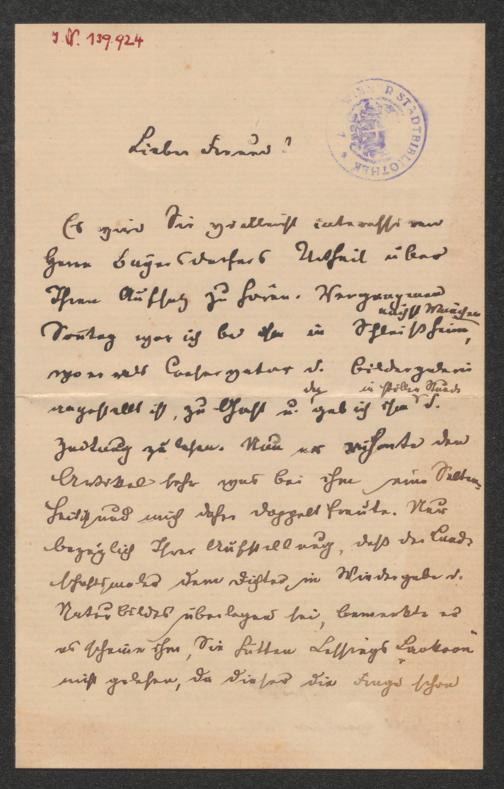 J.N. 139.924
WIENER STADTBIBLIOTHEK
Lieber Freund!
Es wird Sie vielleicht interessiren
Herrn Bayersdorfers Urtheil über
Ihren Aufsatz zu hören. Vergangenen
nächst München
Sonntag war ich bei ihm in Schleißheim,
wo er als Conservator d. Bildergalerie
angestellt ist, zu Gast u. gab ich ihm d.
Zeitung zu lesen. Nun er rühmte den
Artikel sehr was bei ihm eine Selten-
heit ist und mich daher doppelt freute. Nur
bezüglich Ihrer Aufstellung, daß der Land-
schaftsmaler dem Dichter in Wiedergabe d.
Naturbildes überlegen sei, bemerkte er
es scheine ihm, Sie hätten Lessings "Laokoon"
nicht gelesen, da dieser die Frage schon